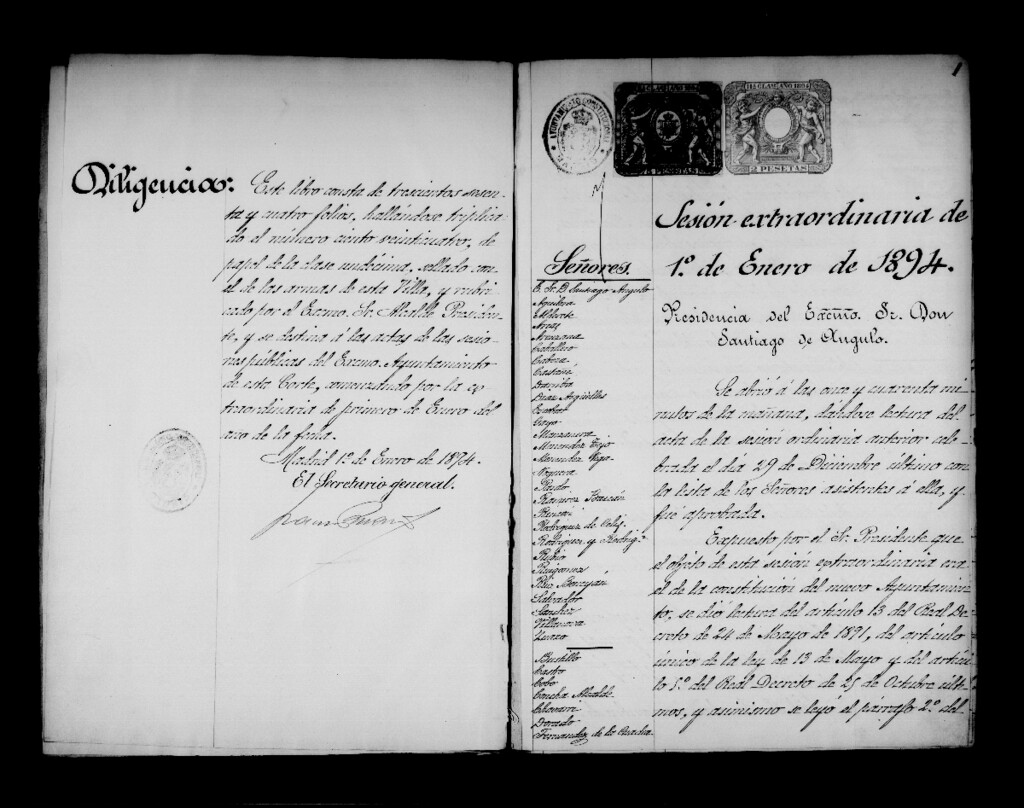 Diligencia:
Este libro consta de trescientos sesen-
ta y cuatro folios, hallándose triplica-
do el número ciento veinticuatro, de
papel de la clase undécima, sellado con
el de las armas de esta Villa, y rubri-
cado por el Excmo. Sr. Alcalde Presiden-
te, y se destina á las actas de las sesio-
nes públicas del Excmo. Ayuntamiento
de esta Corte, comenzando por la ex-
traordinaria de primero de Enero del
año de la fecha.
Madrid 1º de Enero de 1894.
El Secretario general.
1
AYUNTAMIENTO CONSTITUCIONAL
11ª CLASE AÑO 1894
2 PESETAS
Sesión extraordinaria de
1º de Enero de 1894.
Presidencia del Excmo. Sr. Don
Santiago de Angulo.
Señores.
E. Sr. D. Santiago Angulo
Aguilera
Arias
Caballero
Cabeza
Castañé
Diaz Argüelles
Escobar
Gayo
Manzanera
Menendez Tejo
Menendez Vega
Noguera
Pando
Ramirez Bascán
Rodriguez de Celis
Rodriguez y Rodrigz
Rubio
Ruigomez
Salvador
Sanchez
Villanueva
Bustillo
Castro
Cobo
Concha Alcalde
Echavarri
Dorado
Fernandez de la Cuadra
Se abrió á las once y cuarenta mi-
nutos de la mañana, dándose lectura del
acta de la sesión ordinaria anterior cele-
brada el día 29 de Diciembre último con
la lista de los Señores asistentes á ella, y
fué aprobada.
Expuesto por el Sr. Presidente que
el objeto de esta sesión extraordinaria era
el de la constitución del nuevo Ayuntamien-
to, se dió lectura del artículo 13 del Real De-
creto de 24 de Mayo de 1891, del artículo
único de la ley de 13 de Mayo y del artícu-
lo 1º del Real Decreto de 25 de Octubre últi-
mos, y asimismo se leyó el párrafo 2º del